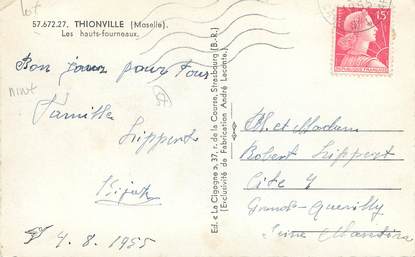 57.672.27. THIONVILLE (Moselle).
Les hauts-fourneaux.
Bon jour pour tous
Famille
Lippert
4.8.1955
Ed. « La Cigogne », 37, r. de la Course, Strasbourg (B.-R.)
(Exclusivité de Fabrication André Leconte.)
15F
M. et Madam
Robert Lippert
Cité 4
Grand-Quevilly
Seine Maritim